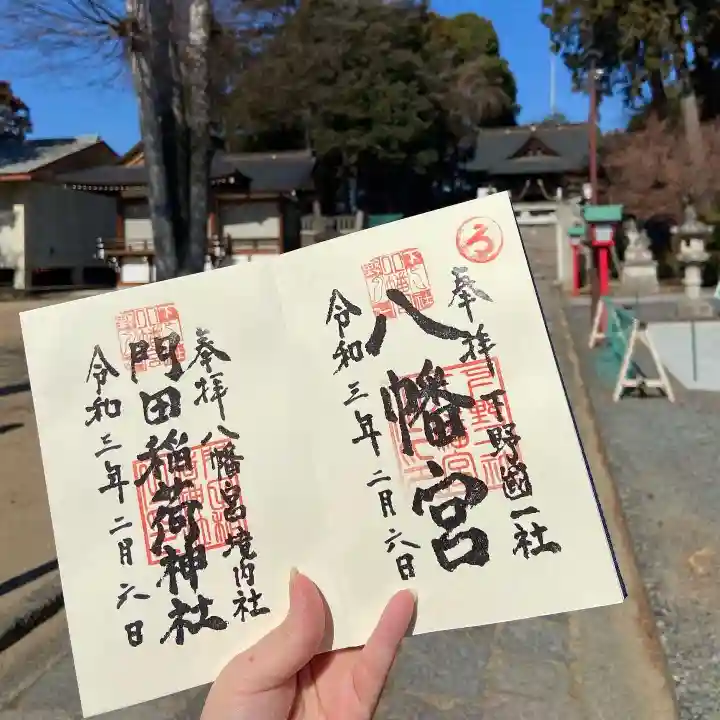 奉拝
下野國一社
八幡宮
令和三年二月六日
奉拝
八幡宮境内社
門田稲荷神社
令和三年二月六日